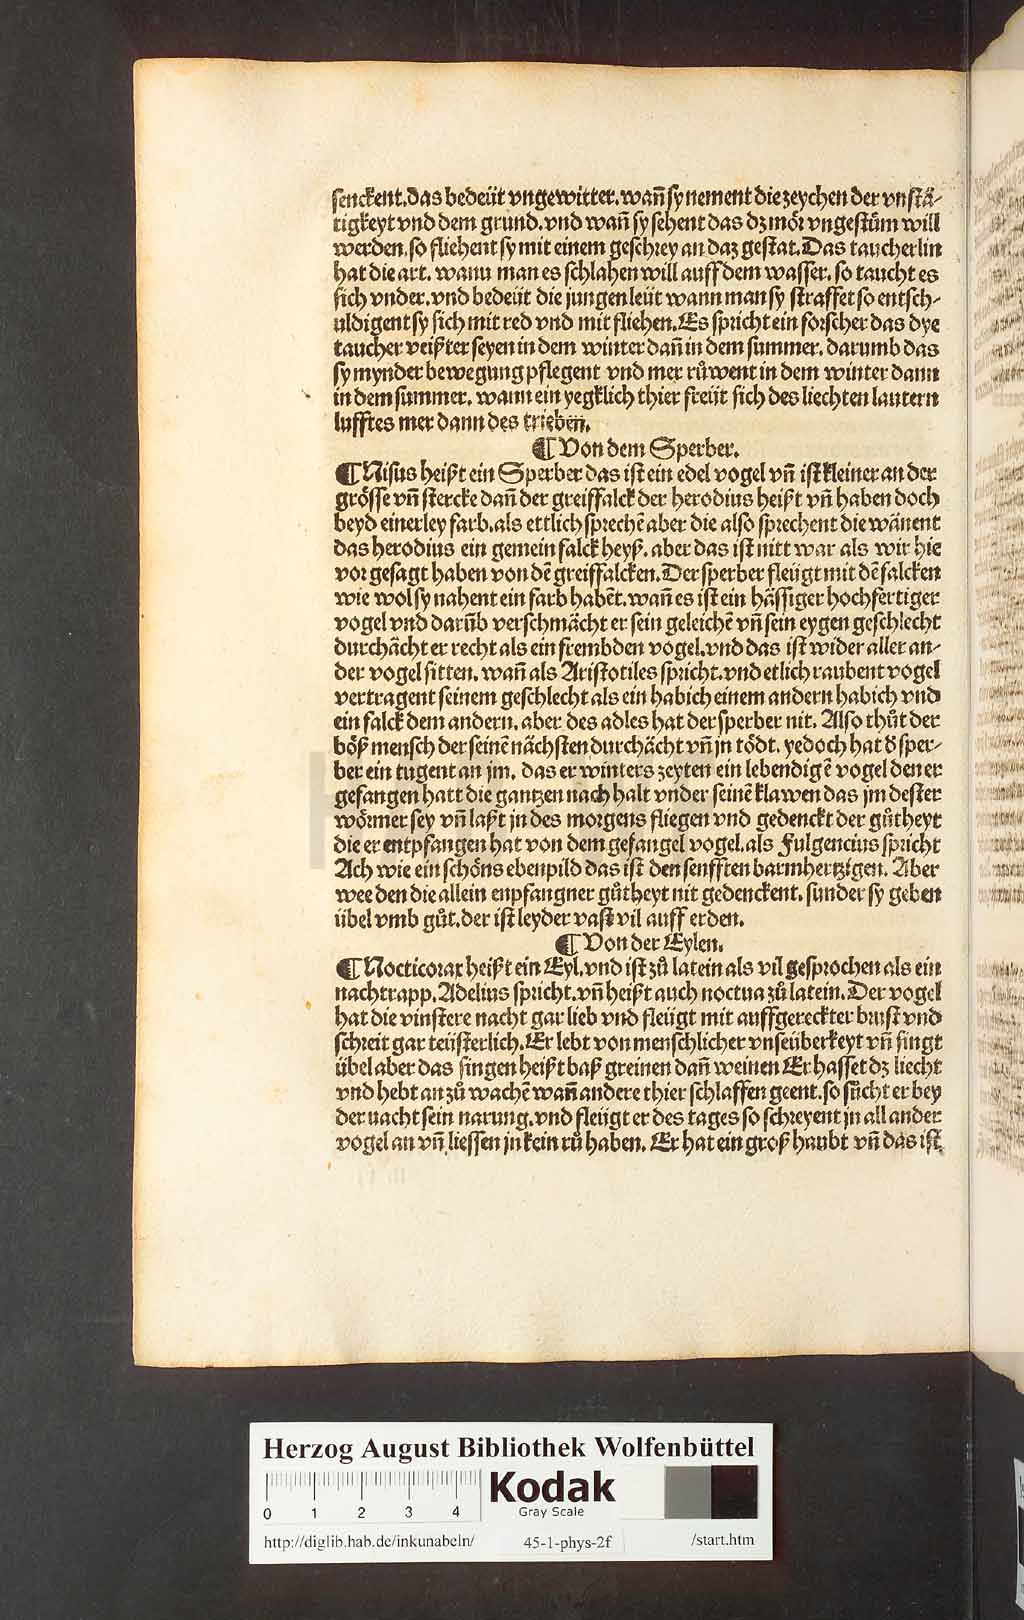 senckent. das bedeüt vngewitter. wañ sy nement die zeychen der vnstä-
tigkeyt vnd dem grund. vnd wañ sy sehent das dz mör vngestüm will
werden. so fliehent sy mit einem geschrey an daz gestat. Das taucherlin
hat die art. wann man es schlahen will auff dem wasser. so taucht es
sich vnder. vnd bedeüt die jungen leüt wann man sy straffet so entsch-
uldigent sy sich mit red vnd mit fliehen. Es spricht ein forscher das dye
taucher veißter seyen in dem winter dañ in dem summer. darumb das
sy mynder bewegung pflegent vnd mer růwent in dem winter dann
in dem summer. wann ein yegklich thier freüt sich des liechten lautern
lufftes mer dann des trieben.
¶ Von dem Sperber.
¶ Nisus heißt ein Sperber das ist ein edel vogel vñ ist kleiner an der
grösse vñ stercke dañ der greiffalck der herodius heißt vñ haben doch
beyd einerley farb. als ettlich sprechē aber die also sprechent die wänent
das herodius ein gemein falck heyß. aber das ist nitt war als wir hie
vor gesagt haben von dē greiffalcken. Der sperber fleügt mit dē falcken
wie wol sy nahent ein farb habēt. wañ es ist ein hässiger hochfertiger
vogel vnd darūb verschmächt er sein geleichē vñ sein eygen geschlecht
durchächt er recht als ein frembden vogel. vnd das ist wider aller an-
der vogel sitten. wañ als Aristotiles spricht. vnd etlich raubent vogel
vertragent seinem geschlecht als ein habich einem andern habich vnd
ein falck dem andern. aber des adles hat der sperber nit. Also thůt der
böß mensch der seinē nächsten durchächt vñ jn tödt. yedoch hat d̕ sper-
ber ein tugent an jm. das er winters zeyten ein lebendigē vogel den er
gefangen hatt die gantzen nach halt vnder seinē klawen das jm dester
wörmer sey vñ laßt jn des morgens fliegen vnd gedenckt der gůtheyt
die er entpfangen hat von dem gefangel vogel. als Fulgencius spricht
Ach wie ein schöns ebenpild das ist den senfften barmhertzigen. Aber
wee den die allein enpfangner gůtheyt nit gedenckent. sunder sy geben
übel vmb gůt. der ist leyder vast vil auff erden.
¶ Von der Eylen.
¶ Nocticorax heißt ein Eyl. vnd ist zů latein als vil gesprochen als ein
nachtrapp. Adelius spricht. vñ heißt auch noctua zů latein. Der vogel
hat die vinstere nacht gar lieb vnd fleügt mit auffgereckter brust vnd
schreit gar teüsterlich. Er lebt von menschlicher vnseüberkeyt vñ singt
übel aber das singen heißt baß greinen dañ weinen Er hasset dz liecht
vnd hebt an zů wachē wañ andere thier schlaffen geent. so sůcht er bey
der nacht sein narung. vnd fleügt er des tages so schreyent jn all ander
vogel an vñ liessen jn kein rů haben. Er hat ein groß haubt vñ das ist
Herzog August Bibliothek Wolfenbüttel
0 1 2 3 4
Kodak
Gray Scale
http://diglib.hab.de/inkunabeln/ 45-1-phys-2f /start.htm